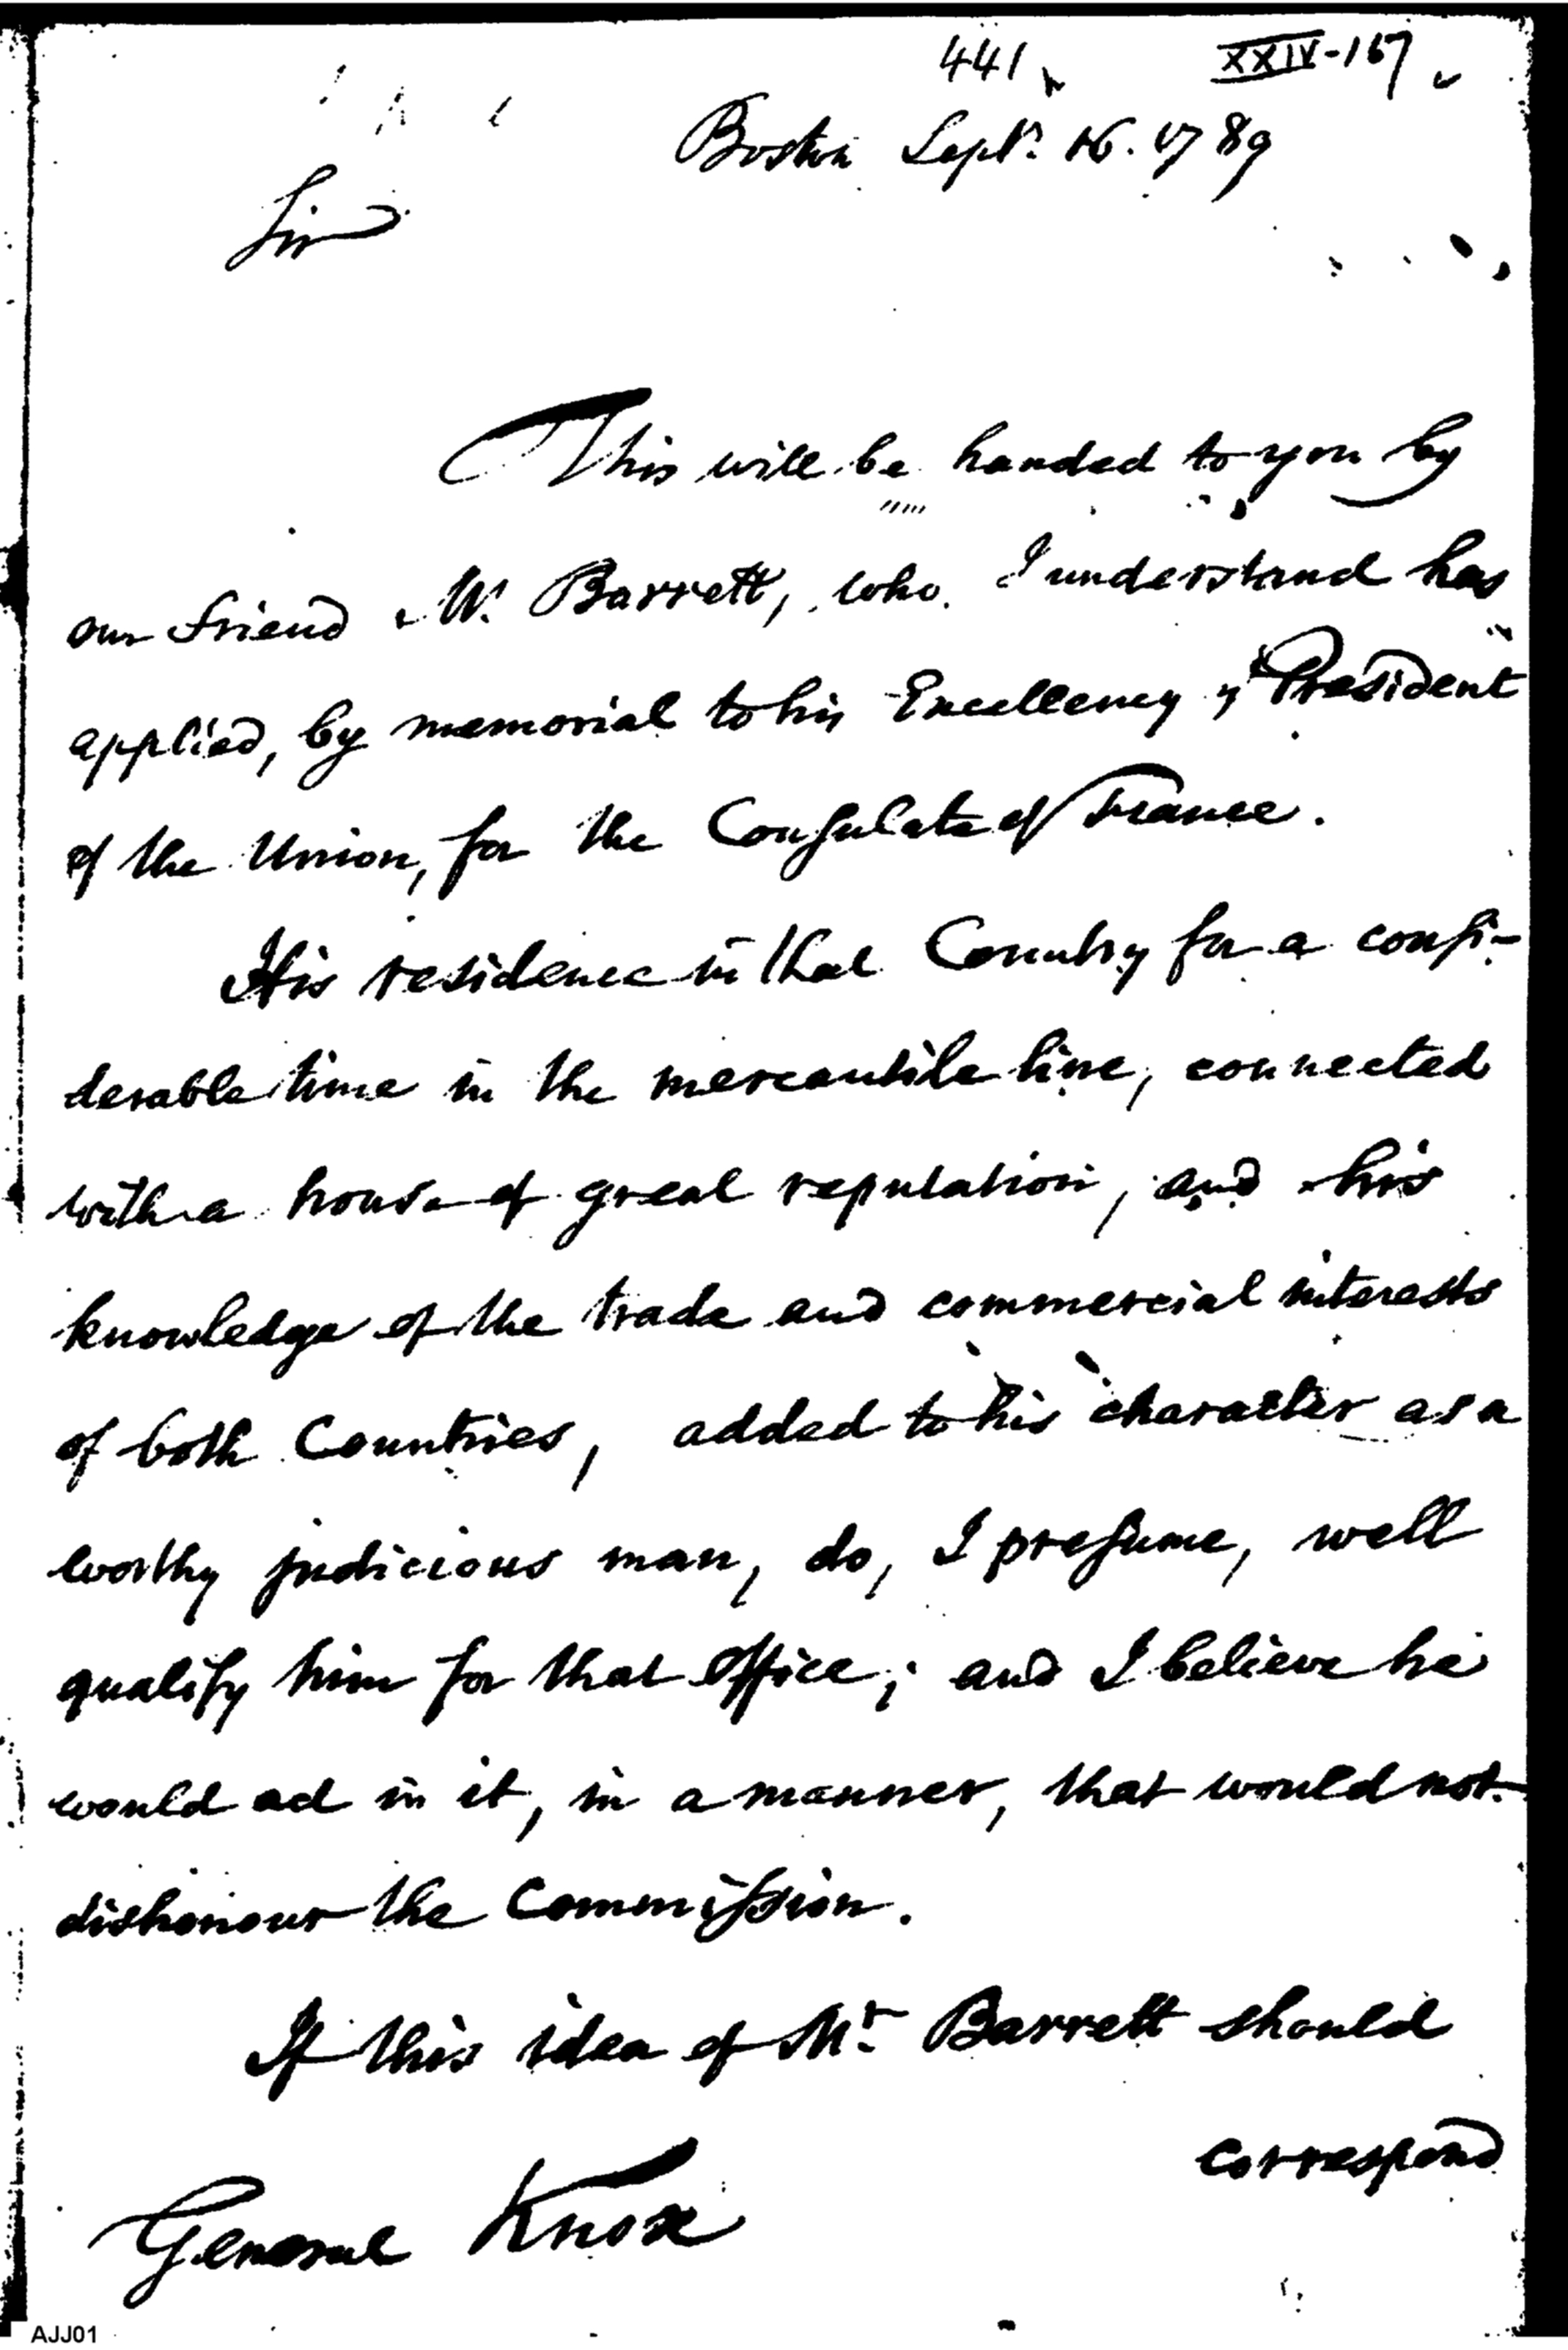 441 XXIV-167
Boston Sept.r 16. 1789
Sir
This will be handed to you by
our friend Mr. Barrett, who I understand has
applied, by memorial to his Excellency ye President
of the Union, for the Conſulate of France.
His residence in that Country for a conſi-
derable time in the mercantile line, connected
with a house of great reputation, and his
knowledge of the trade and commercial interests
of both Countries, added to his character as a
worthy judicious man, do, I preſume, well
qualify him for that office; and I believe he
would act in it, in a manner, that would not
dishonour the Commiſsion.
If this idea of Mr. Barrett should
correspond
General Knox
AJJ01